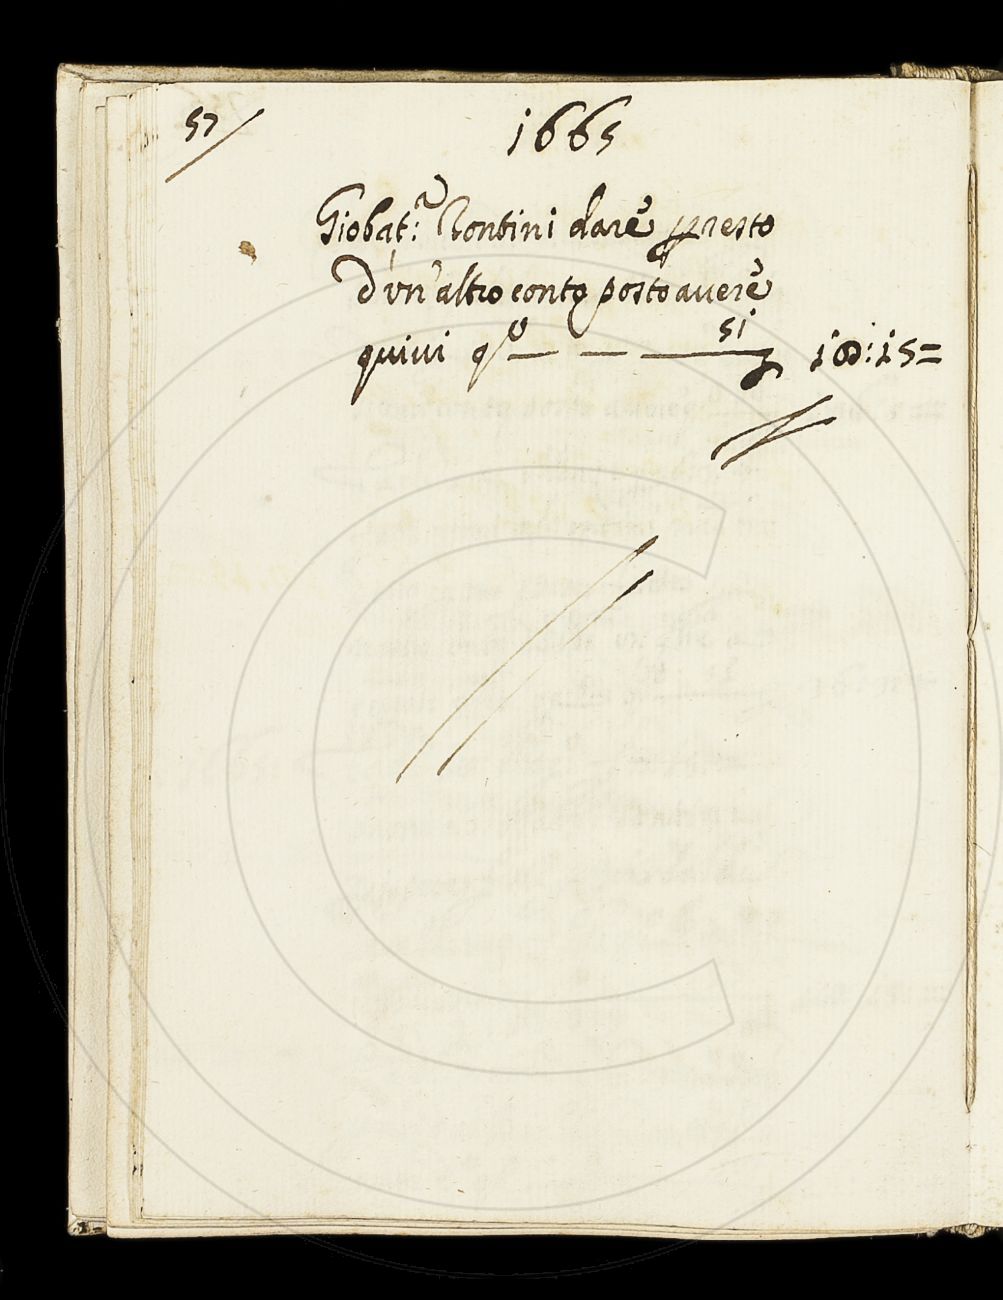 57
1665
Giobat:ª Rontini dare p resto
d'un'altro conto posto avere
quivi qº — — — 51